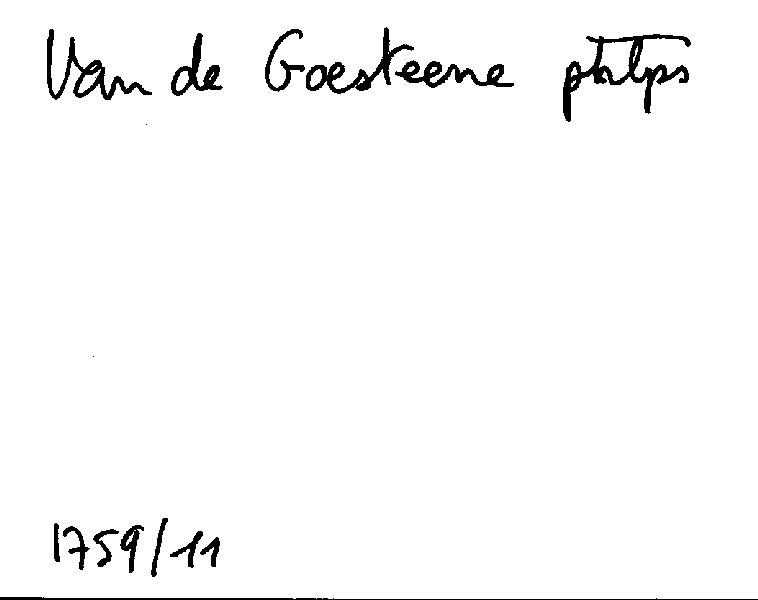 Van de Goesteene phlps
1759/11